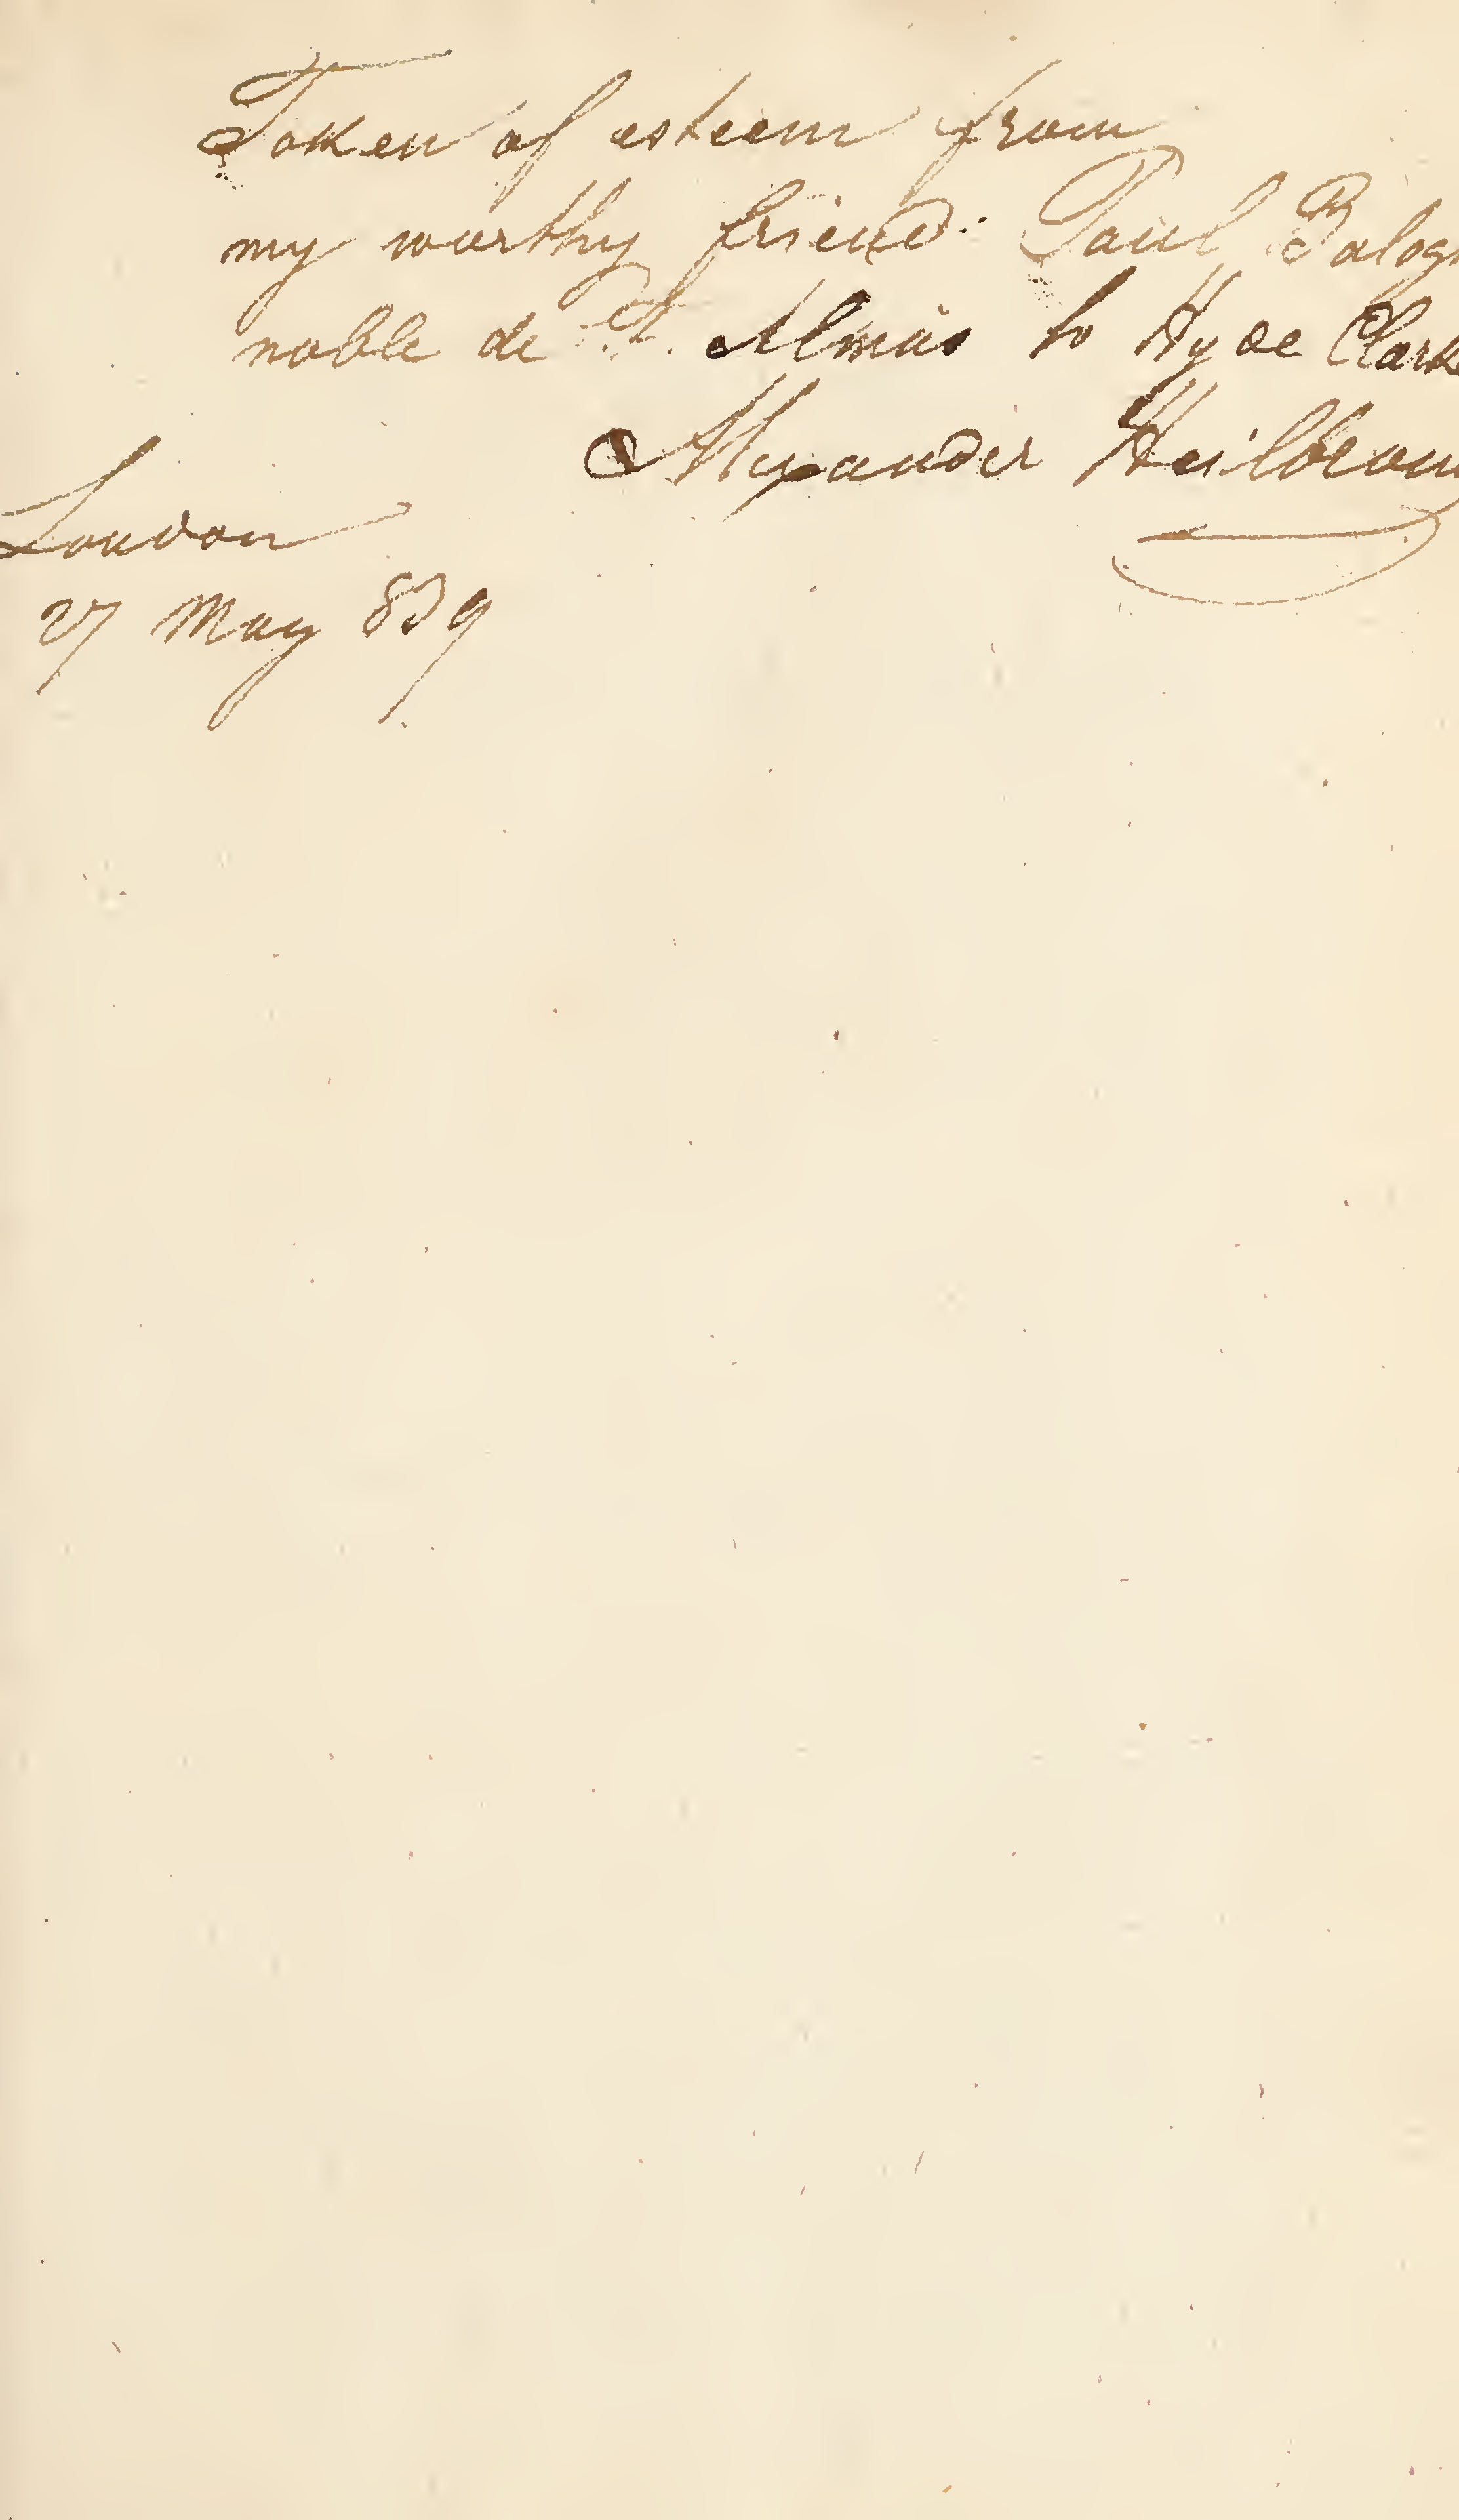 Token of esteem from
my worthy friend: Paul Balogh
noble de A. Almás to Hyde Clarke
Alexander Heilbronn
London
27 May 839